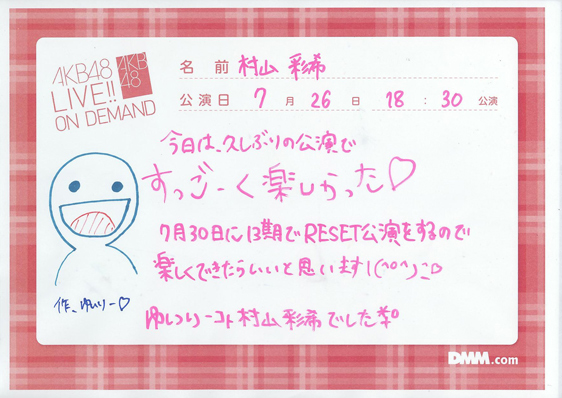 AKB48
LIVE!!
ON DEMAND
AKB
48
名前 村山 彩希
公演日 7月26日 18:30 公演
今日は、久しぶりの公演で
すっごーく楽しかった♡
7月30日に13期でRESET公演をするので
楽しくできたらいいと思います!(^o^)
作、ゆいりー♡
ゆいりーコト村山彩希でした
DMM.com